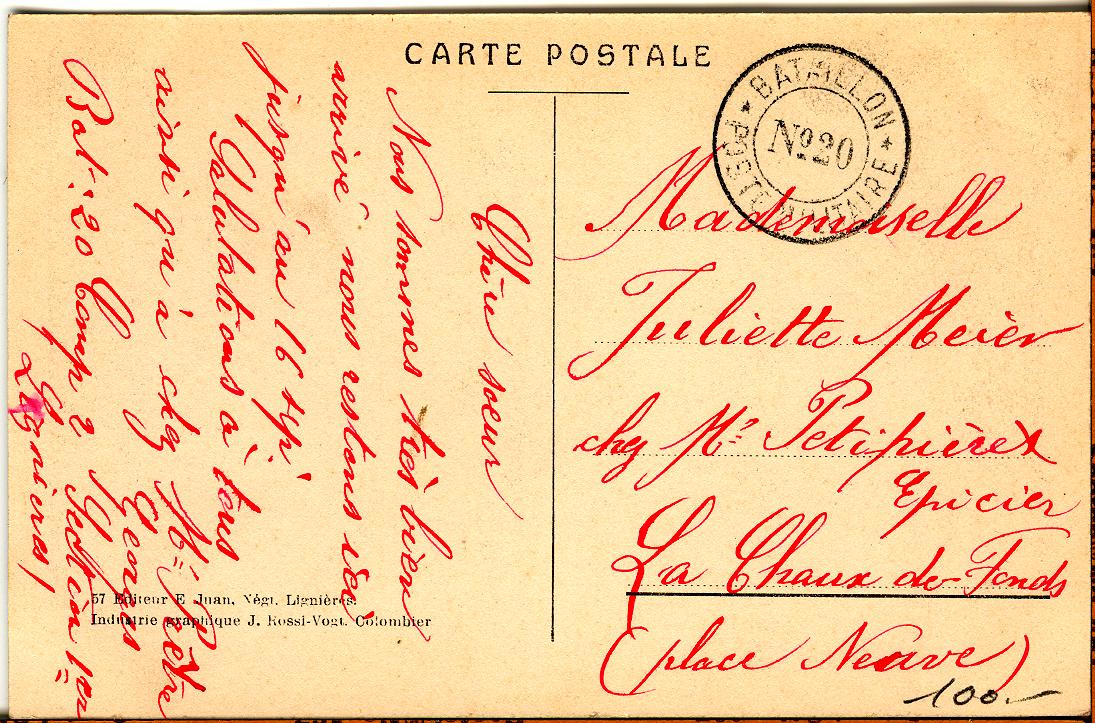 CARTE POSTALE
BATAILLON
No. 20
POSTE MILITAIRE
Chère soeur
Nous sommes très bien
arrivé nous restons ici
jusqu'au 16 sep
Salutations à tous
ainsi qu'à chez Mr
Georges
Bat: 20 Comp 2 Section 1er
Lignieres
Mademoiselle
Juliette Meier
chez Mr Petipièrre
Epicier
La Chaux de-Fonds
(place Neuve)
57 Editeur E. Juan, Négt. Lignières.
Industrie graphique J. Rossi-Vogt. Colombier
100.-